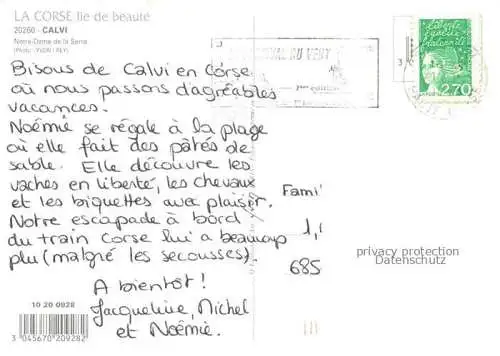 LA CORSE île de beauté
20260 - CALVI
Notre-Dame de la Serra
(Photo : YVON / REY)
Bisous de Calvi en Corse
où nous passons d'agréables
vacances.
Noémie se régale à la plage
où elle fait des pâtés de
sable. Elle découvre les
vaches en liberté, les chevaux
et les biquettes avec plaisir.
Notre escapade à bord
du train Corse lui a beaucoup
plu (malgré les secousses).
A bientôt !
Jacqueline, Michel
et Noémie.
DU VENT
liberté
égalité
fraternité
2,70
Fami
685
privacy protection
Datenschutz
10 20 0928
3 045670 209282